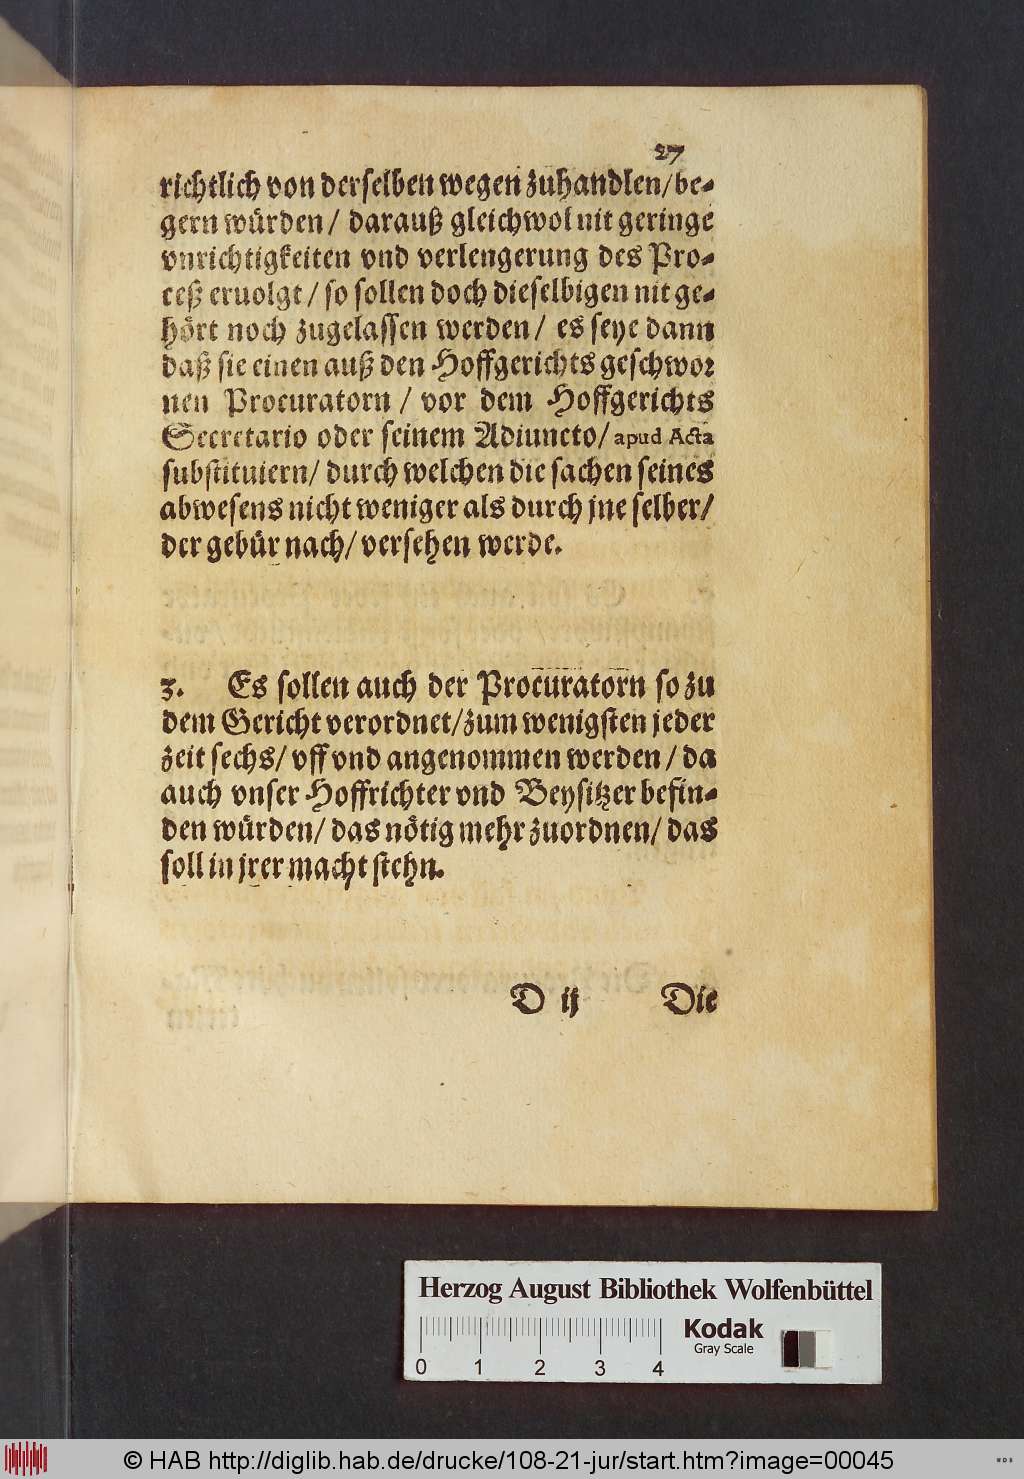 27
richtlich von derselben wegen zuhandlen/be-
gern würden/ darauß gleichwol nit geringe
vnrichtigkeiten vnd verlengerung des Pro-
ceß eruolgt/ so sollen doch dieselbigen nit ge-
hört noch zugelassen werden/ es seye dann
daß sie einen auß den Hoffgerichts geschwor
nen Procuratorn/ vor dem Hoffgerichts
Secretario oder seinem Adiuncto/ apud Acta
substituiern/ durch welchen die sachen seines
abwesens nicht weniger als durch jne selber/
der gebür nach/ versehen werde.
3. Es sollen auch der Procuratorn so zu
dem Gericht verordnet/zum wenigsten jeder
zeit sechs/ vff vnd angenommen werden/ da
auch vnser Hoffrichter vnd Beysitzer befin-
den würden/ das nötig mehr zuordnen/ das
soll in jrer macht stehn.
D ij Die
Herzog August Bibliothek Wolfenbüttel
0 1 2 3 4
Kodak
Gray Scale
© HAB http://diglib.hab.de/drucke/108-21-jur/start.htm?image=00045